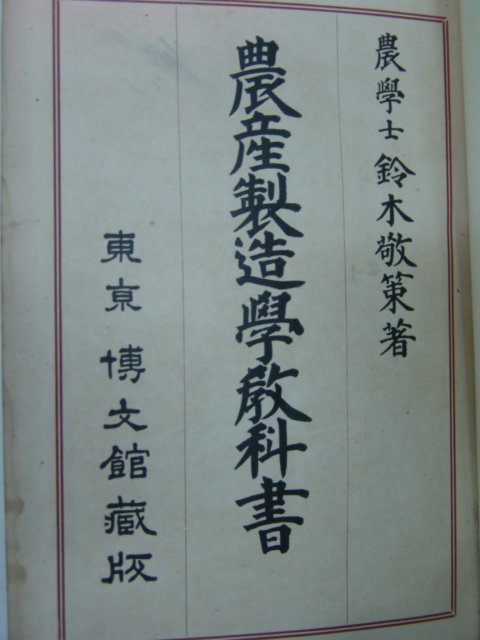 農學士 鈴木敬策著
農產製造學敎科書
東京 博文館藏版